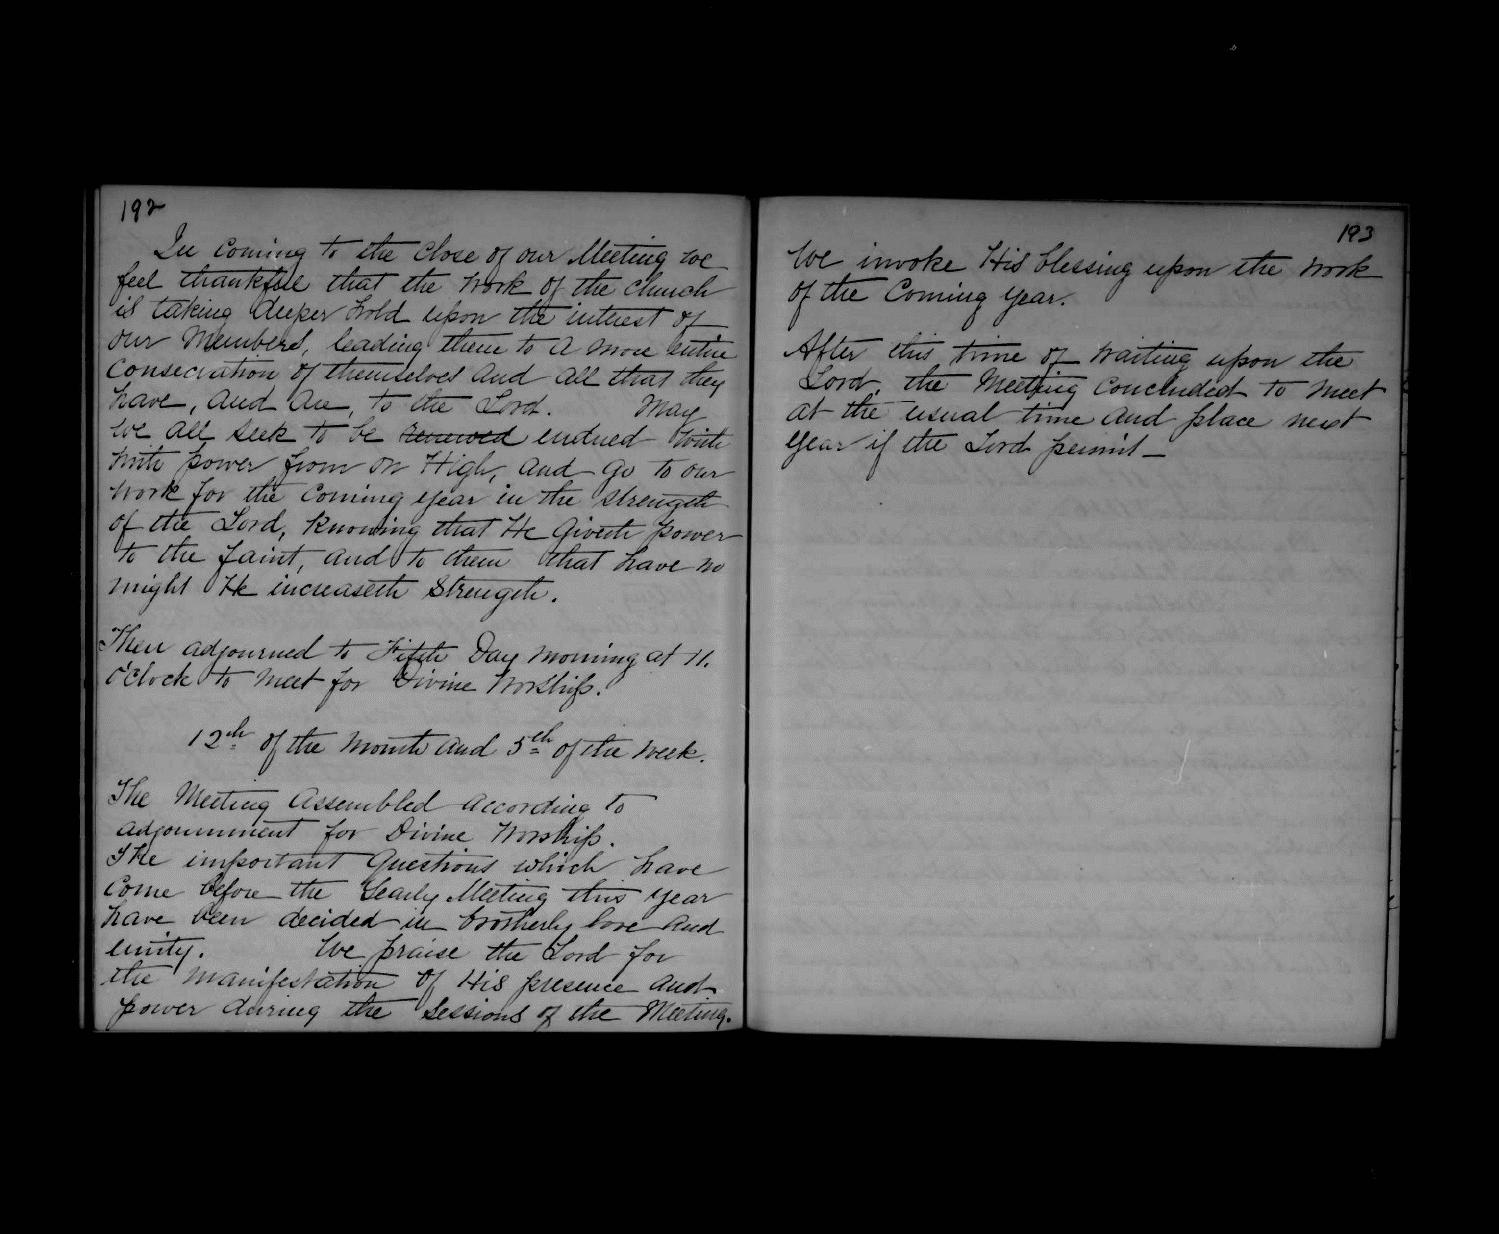 192
In coming to the close of our Meeting we
feel thankful that the work of the church
is taking deeper hold upon the interest of
our Members, leading them to a more entire
consecration of themselves and all that they
have, and are, to the Lord. May
we all seek to be renewed endued with
with power from on High, and go to our
work for the coming year in the strength
of the Lord, knowing that He giveth power
to the faint, and to them that have no
might He increaseth strength.
Then adjourned to Fifth Day morning at 11.
O'Clock to meet for Divine Worship.
12th of the month and 5th of the week.
The Meeting Assembled according to
adjournment for Divine Worship.
The important Questions which have
come before the Yearly Meeting this year
have been decided in brotherly love and
unity. We praise the Lord for
the manifestation of His presence and
power during the sessions of the Meeting.
193
We invoke His blessing upon the work
of the Coming year.
After this time of waiting upon the
Lord, the Meeting concluded to meet
at the usual time and place next
year if the Lord permit—